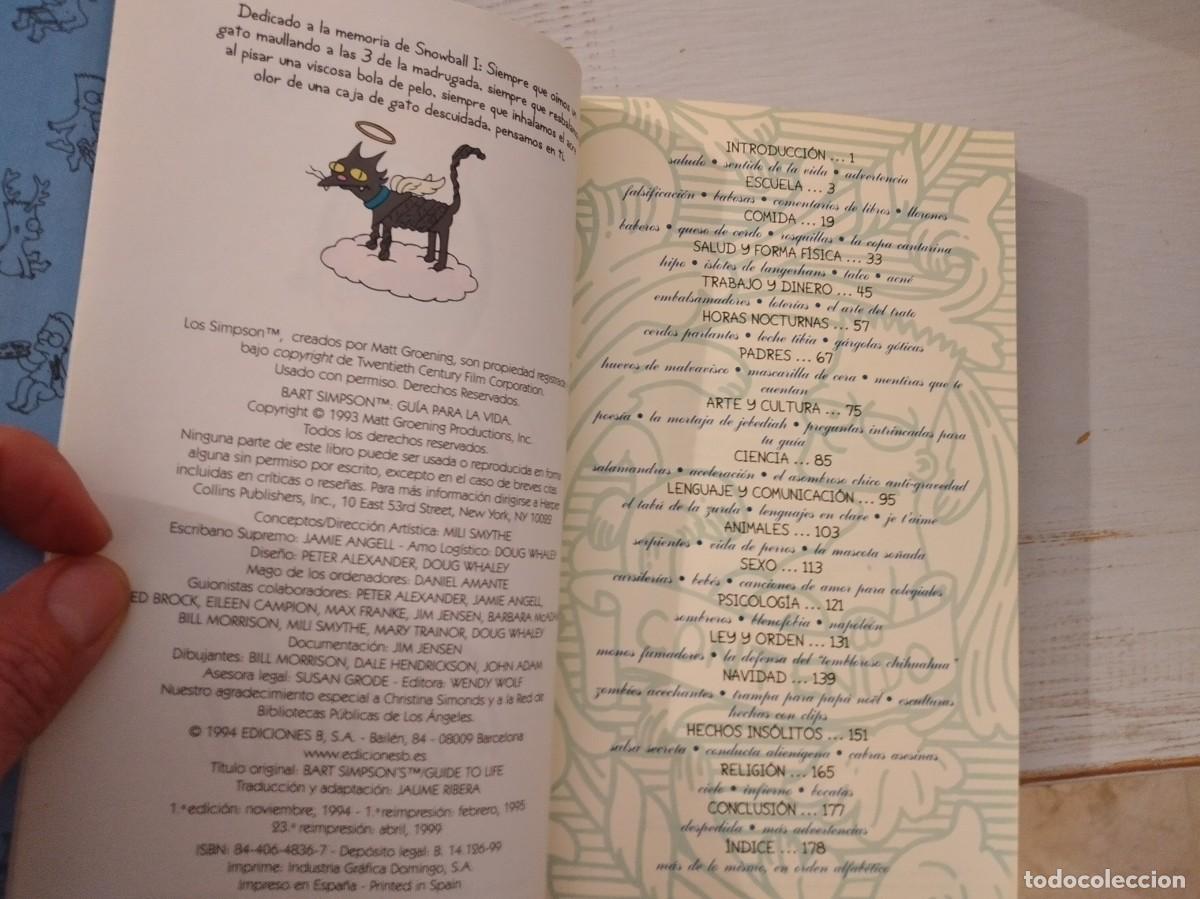 Dedicado a la memoria de Snowball I: Siempre que oímos un
gato maullando a las 3 de la madrugada, siempre que resbalamos
al pisar una viscosa bola de pelo, siempre que inhalamos el acre
olor de una caja de gato descuidada, pensamos en ti.
Los Simpson™, creados por Matt Groening, son propiedad registrada
bajo copyright de Twentieth Century Film Corporation.
Usado con permiso. Derechos Reservados.
BART SIMPSON™: GUÍA PARA LA VIDA.
Copyright © 1993 Matt Groening Productions, Inc.
Todos los derechos reservados.
Ninguna parte de este libro puede ser usada o reproducida en forma
alguna sin permiso por escrito, excepto en el caso de breves citas
incluidas en críticas o reseñas. Para más información dirigirse a Harper
Collins Publishers, Inc., 10 East 53rd Street, New York, NY 10099
Conceptos/Dirección Artística: MILI SMYTHE
Escribano Supremo: JAMIE ANGELL - Amo Logístico: DOUG WHALEY
Diseño: PETER ALEXANDER, DOUG WHALEY
Mago de los ordenadores: DANIEL AMANTE
Guionistas colaboradores: PETER ALEXANDER, JAMIE ANGELL,
ED BROCK, EILEEN CAMPION, MAX FRANKE, JIM JENSEN, BARBARA
BILL MORRISON, MILI SMYTHE, MARY TRAINOR, DOUG WHALEY
Documentación: JIM JENSEN
Dibujantes: BILL MORRISON, DALE HENDRICKSON, JOHN ADAM
Asesora legal: SUSAN GRODE - Editora: WENDY WOLF
Nuestro agradecimiento especial a Christina Simonds y a la Red de
Bibliotecas Públicas de Los Ángeles.
© 1994 EDICIONES B, S.A. - Bailén, 84 - 08009 Barcelona
www.edicionesb.es
Título original: BART SIMPSON'S™/GUIDE TO LIFE
Traducción y adaptación: JAUME RIBERA
1.ª edición: noviembre, 1994 - 1.ª reimpresión: febrero, 1995
23.ª reimpresión: abril, 1999
ISBN: 84-406-4836-7 - Depósito legal: B. 14.126-99
Imprime: Industria Gráfica Domingo, S.A.
Impreso en España - Printed in Spain
INTRODUCCIÓN ... 1
saludo • sentido de la vida • advertencia
ESCUELA ... 3
falsificación • babosas • comentarios de libros • llorones
COMIDA ... 19
baberos • queso de cerdo • rosquillas • la copa cantarina
SALUD Y FORMA FÍSICA ... 33
hipo • islotes de langerhans • talco • acné
TRABAJO Y DINERO ... 45
embalsamadores • loterías • el arte del trato
HORAS NOCTURNAS ... 57
cerdos parlantes • leche tibia • gárgolas góticas
PADRES ... 67
huevos de malvavisco • mascarilla de cera • mentiras que te
cuentan
ARTE Y CULTURA ... 75
poesía • la mortaja de jebediah • preguntas intrincadas para
tu guía
CIENCIA ... 85
salamandras • aceleración • el asombroso chico anti-gravedad
LENGUAJE Y COMUNICACIÓN ... 95
el tabú de la zurda • lenguajes en clave • je t'aime
ANIMALES ... 103
serpientes • vida de perros • la mascota soñada
SEXO ... 113
cursilerías • bebés • canciones de amor para colegiales
PSICOLOGÍA ... 121
sombreros • blenofobia • napoleón
LEY Y ORDEN ... 131
monos fumadores • la defensa del "tembloroso chihuahua"
NAVIDAD ... 139
zombies acechantes • trampa para papá noël • esculturas
hechas con clips
HECHOS INSÓLITOS ... 151
salsa secreta • conducta alienígena • cabras asesinas
RELIGIÓN ... 165
cielo • infierno • bocatas
CONCLUSIÓN ... 177
despedida • más advertencias
ÍNDICE ... 178
más de lo mismo, en orden alfabético
todocoleccion